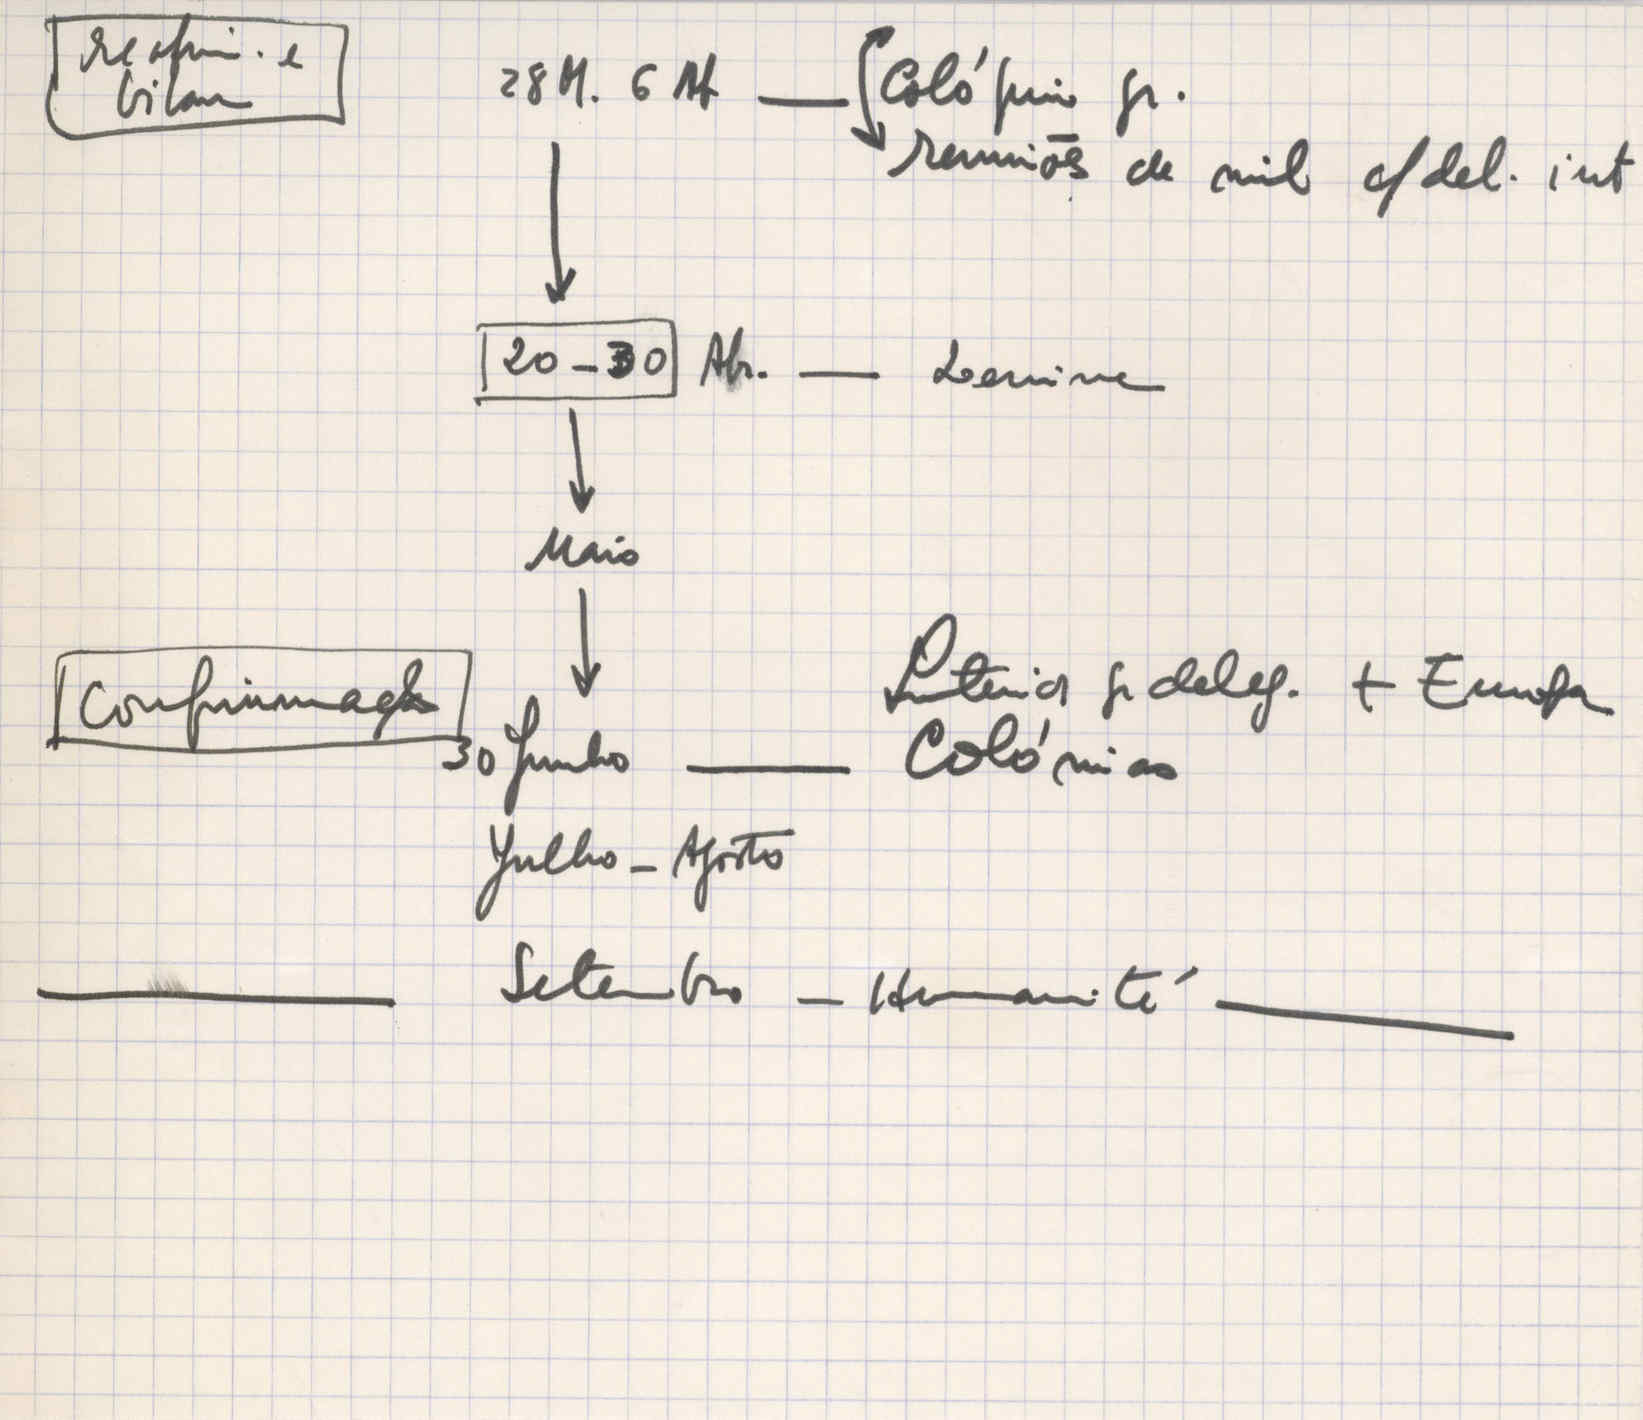 reafirm. e
bilan
28 M. 6 Ab — Colóquio gr.
reuniões de mil c/ del. int
20 - 30 Abr. — Lenine
Maio
Confirmação
Interior gr deleg. + Europa
30 Junho — Colónias
Julho - Agosto
Setembro - Humanité